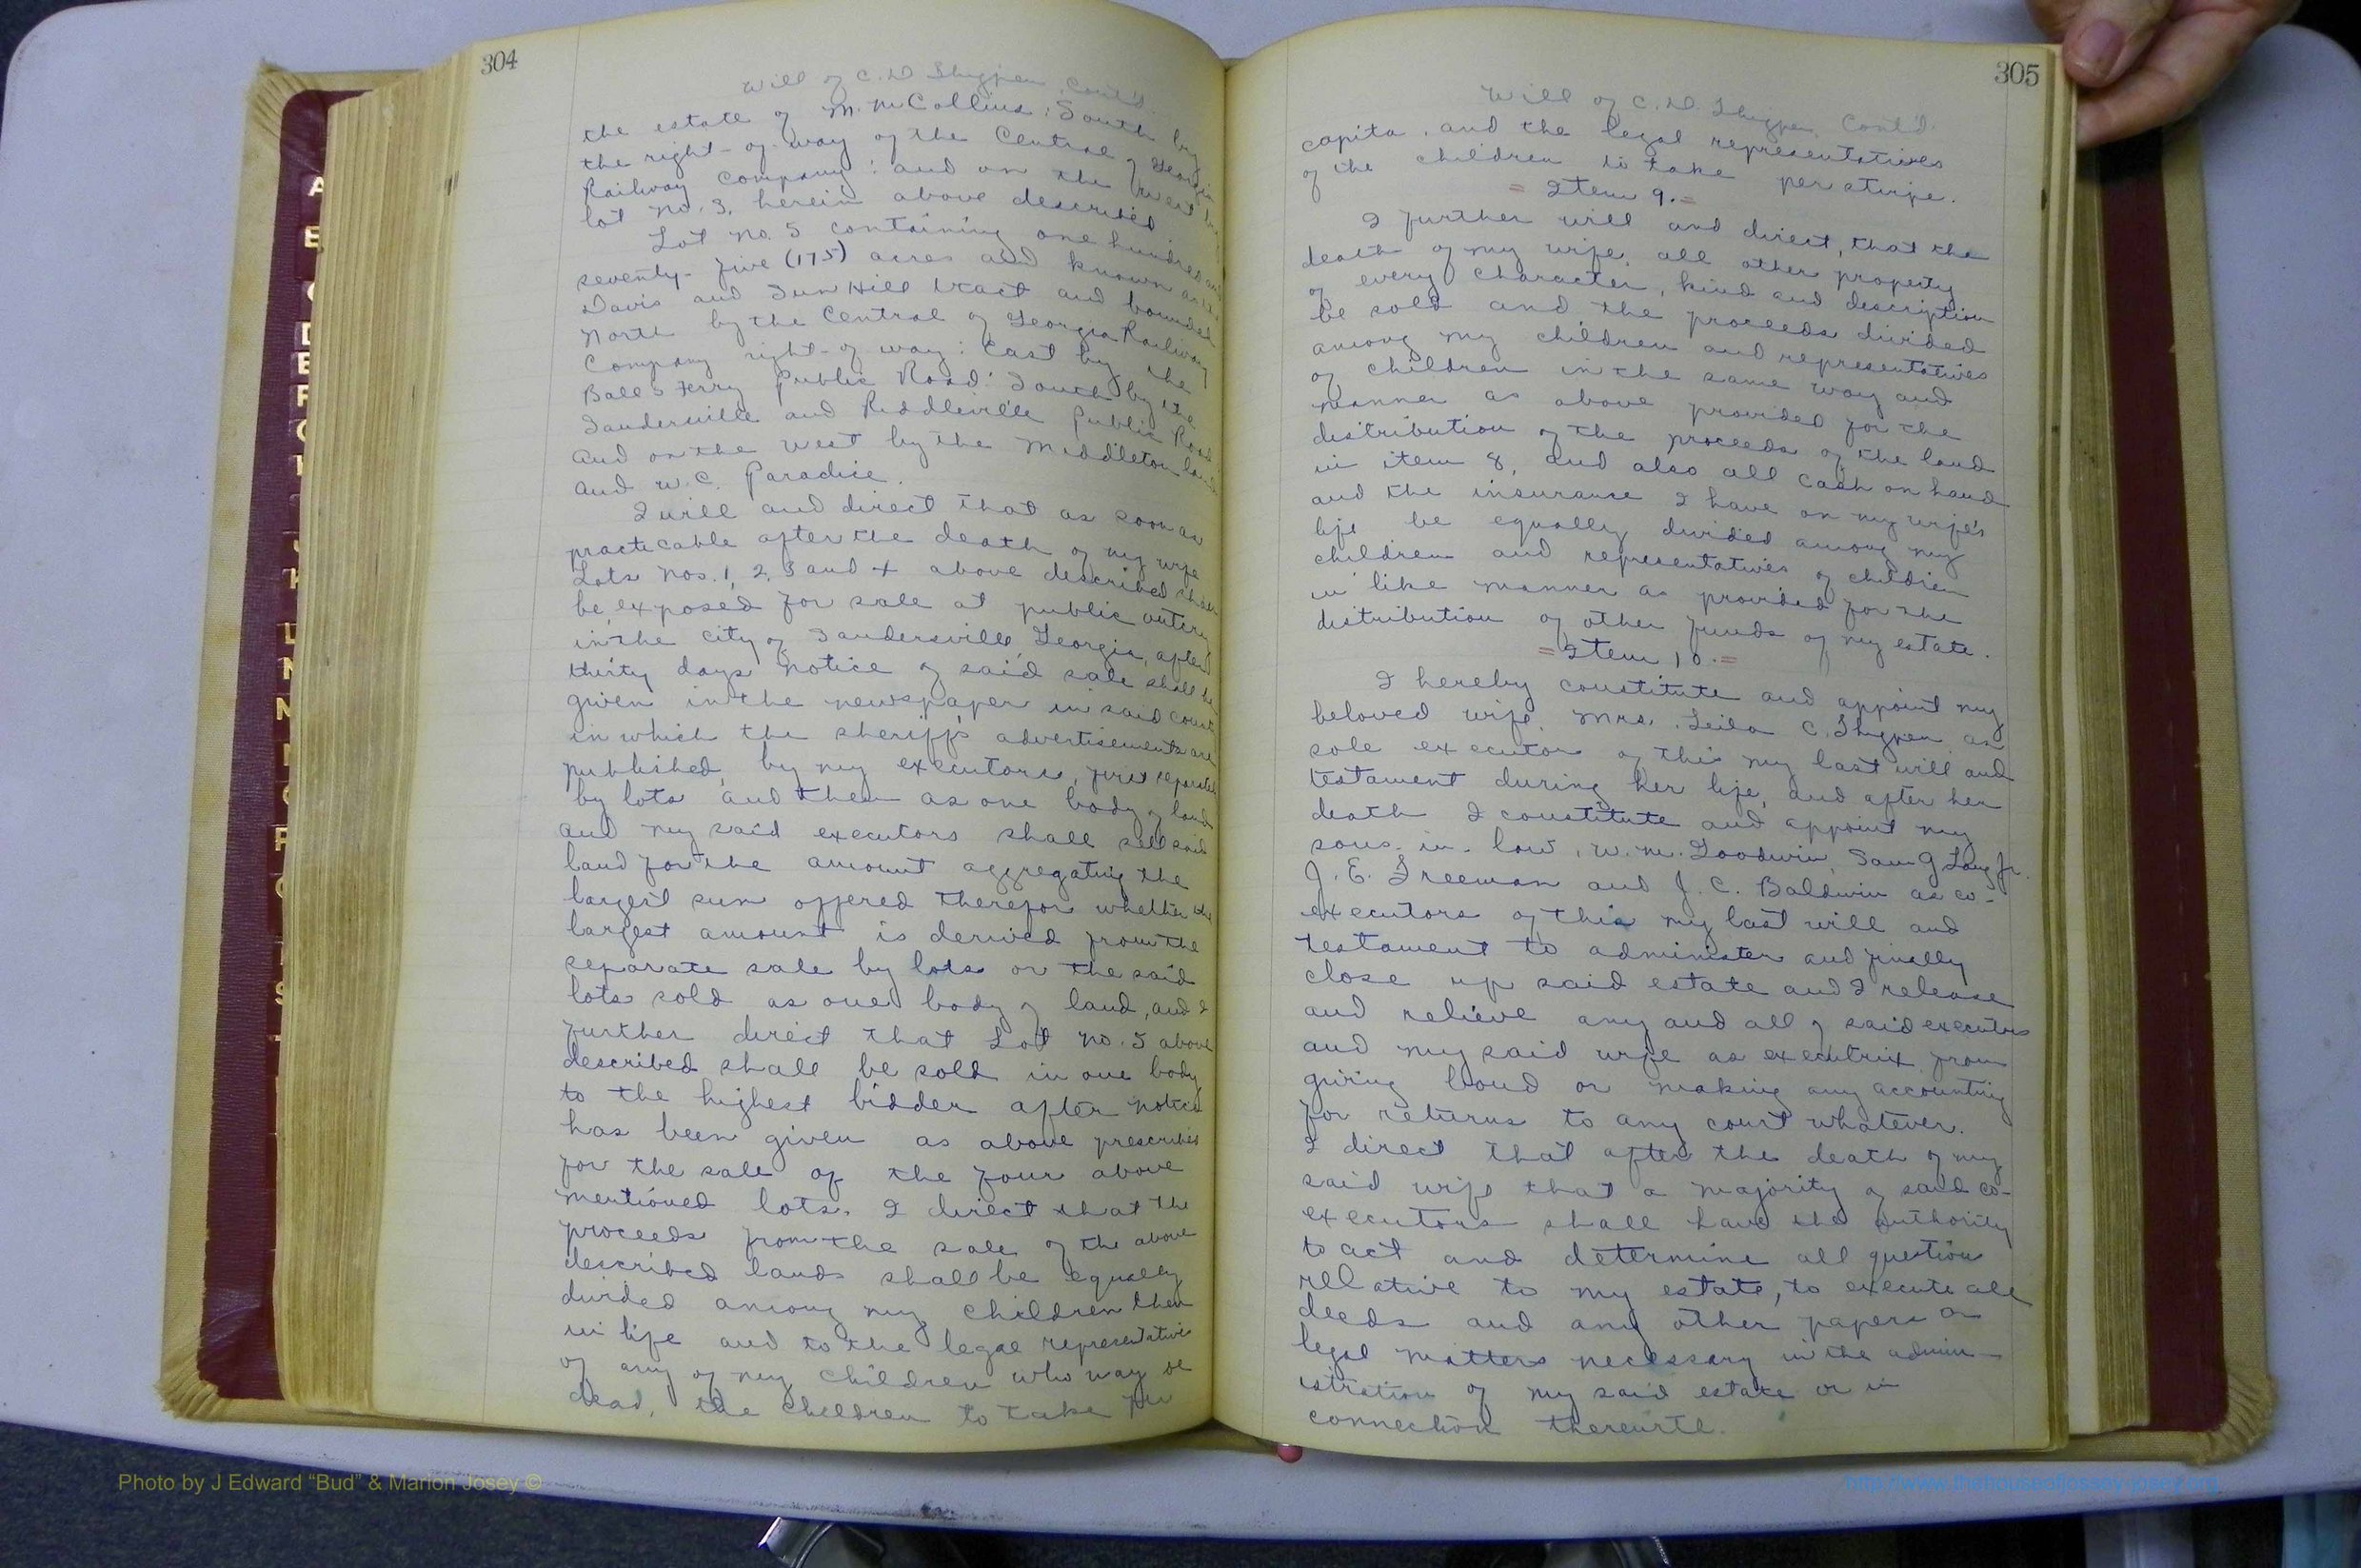 304
Will of C. D. Thigpen Cont'd.
the estate of M. M Collins: South by
the right-of-way of the Central of Georgia
Railway Company: and on the West by
lot No. 3, herein above described
Lot No. 5 containing one hundred and
seventy-five (175) acres and known as the
Davis and Sun Hill tract and bounded
North by the Central of Georgia Railway
Company right-of way: East by the
Ball's Ferry Public Road: South by the
Sandersville and Riddleville Public Road
and on the West by the Middleton land
and W. C. Paradice.
I will and direct that as soon as
practicable after the death of my wife
Lots Nos. 1, 2, 3 and 4 above described shall
be exposed for sale at public outcry
in the city of Sandersville, Georgia, after
thirty days notice of said sale shall be
given in the newspaper in said county
in which the sheriff's advertisements are
published, by my executors, first separately
by lots and then as one body of land
and my said executors shall sell said
land for the amount aggregating the
largest sum offered therefor whether the
largest amount is derived from the
separate sale by lots or the said
lots sold as one body of land, and I
further direct that Lot No. 5 above
described shall be sold in one body
to the highest bidder after notice
has been given as above prescribed
for the sale of the four above
mentioned lots. I direct that the
proceeds from the sale of the above
described lands shall be equally
divided among my children then
in life and to the legal representatives
of any of my children who may be
dead, the children to take per
305
Will of C. D. Thigpen Cont'd.
capita, and the legal representatives
of the children to take per stirpe.
= Item 9. =
I further will and direct, that the
death of my wife, all other property
of every character, kind and description
be sold and the proceeds divided
among my children and representatives
of children in the same way and
manner as above provided for the
distribution of the proceeds of the land
in item 8, and also all cash on hand
and the insurance I have on my wife's
life be equally divided among my
children and representatives of children
in like manner as provided for the
distribution of other funds of my estate.
= Item 10. =
I hereby constitute and appoint my
beloved wife, Mrs. Leila C. Thigpen as
sole executor of this my last will and
testament during her life, and after her
death I constitute and appoint my
sons-in-law, W. M. Goodwin, Sam G Lang Jr.
J. E. Freeman and J. C. Baldwin as co-
executors of this my last will and
testament to administer and finally
close up said estate and I release
and relieve any and all of said executors
and my said wife as executrix from
giving bond or making any accounting
for returns to any court whatever.
I direct that after the death of my
said wife that a majority of said co-
executors shall have the authority
to act and determine all question
relative to my estate, to execute all
deeds and any other papers or
legal matters necessary in the admin-
istration of my said estate or in
connection therewith.
Photo by J Edward “Bud” & Marion Josey ©
http://www.thehouseofjossey-josey.org